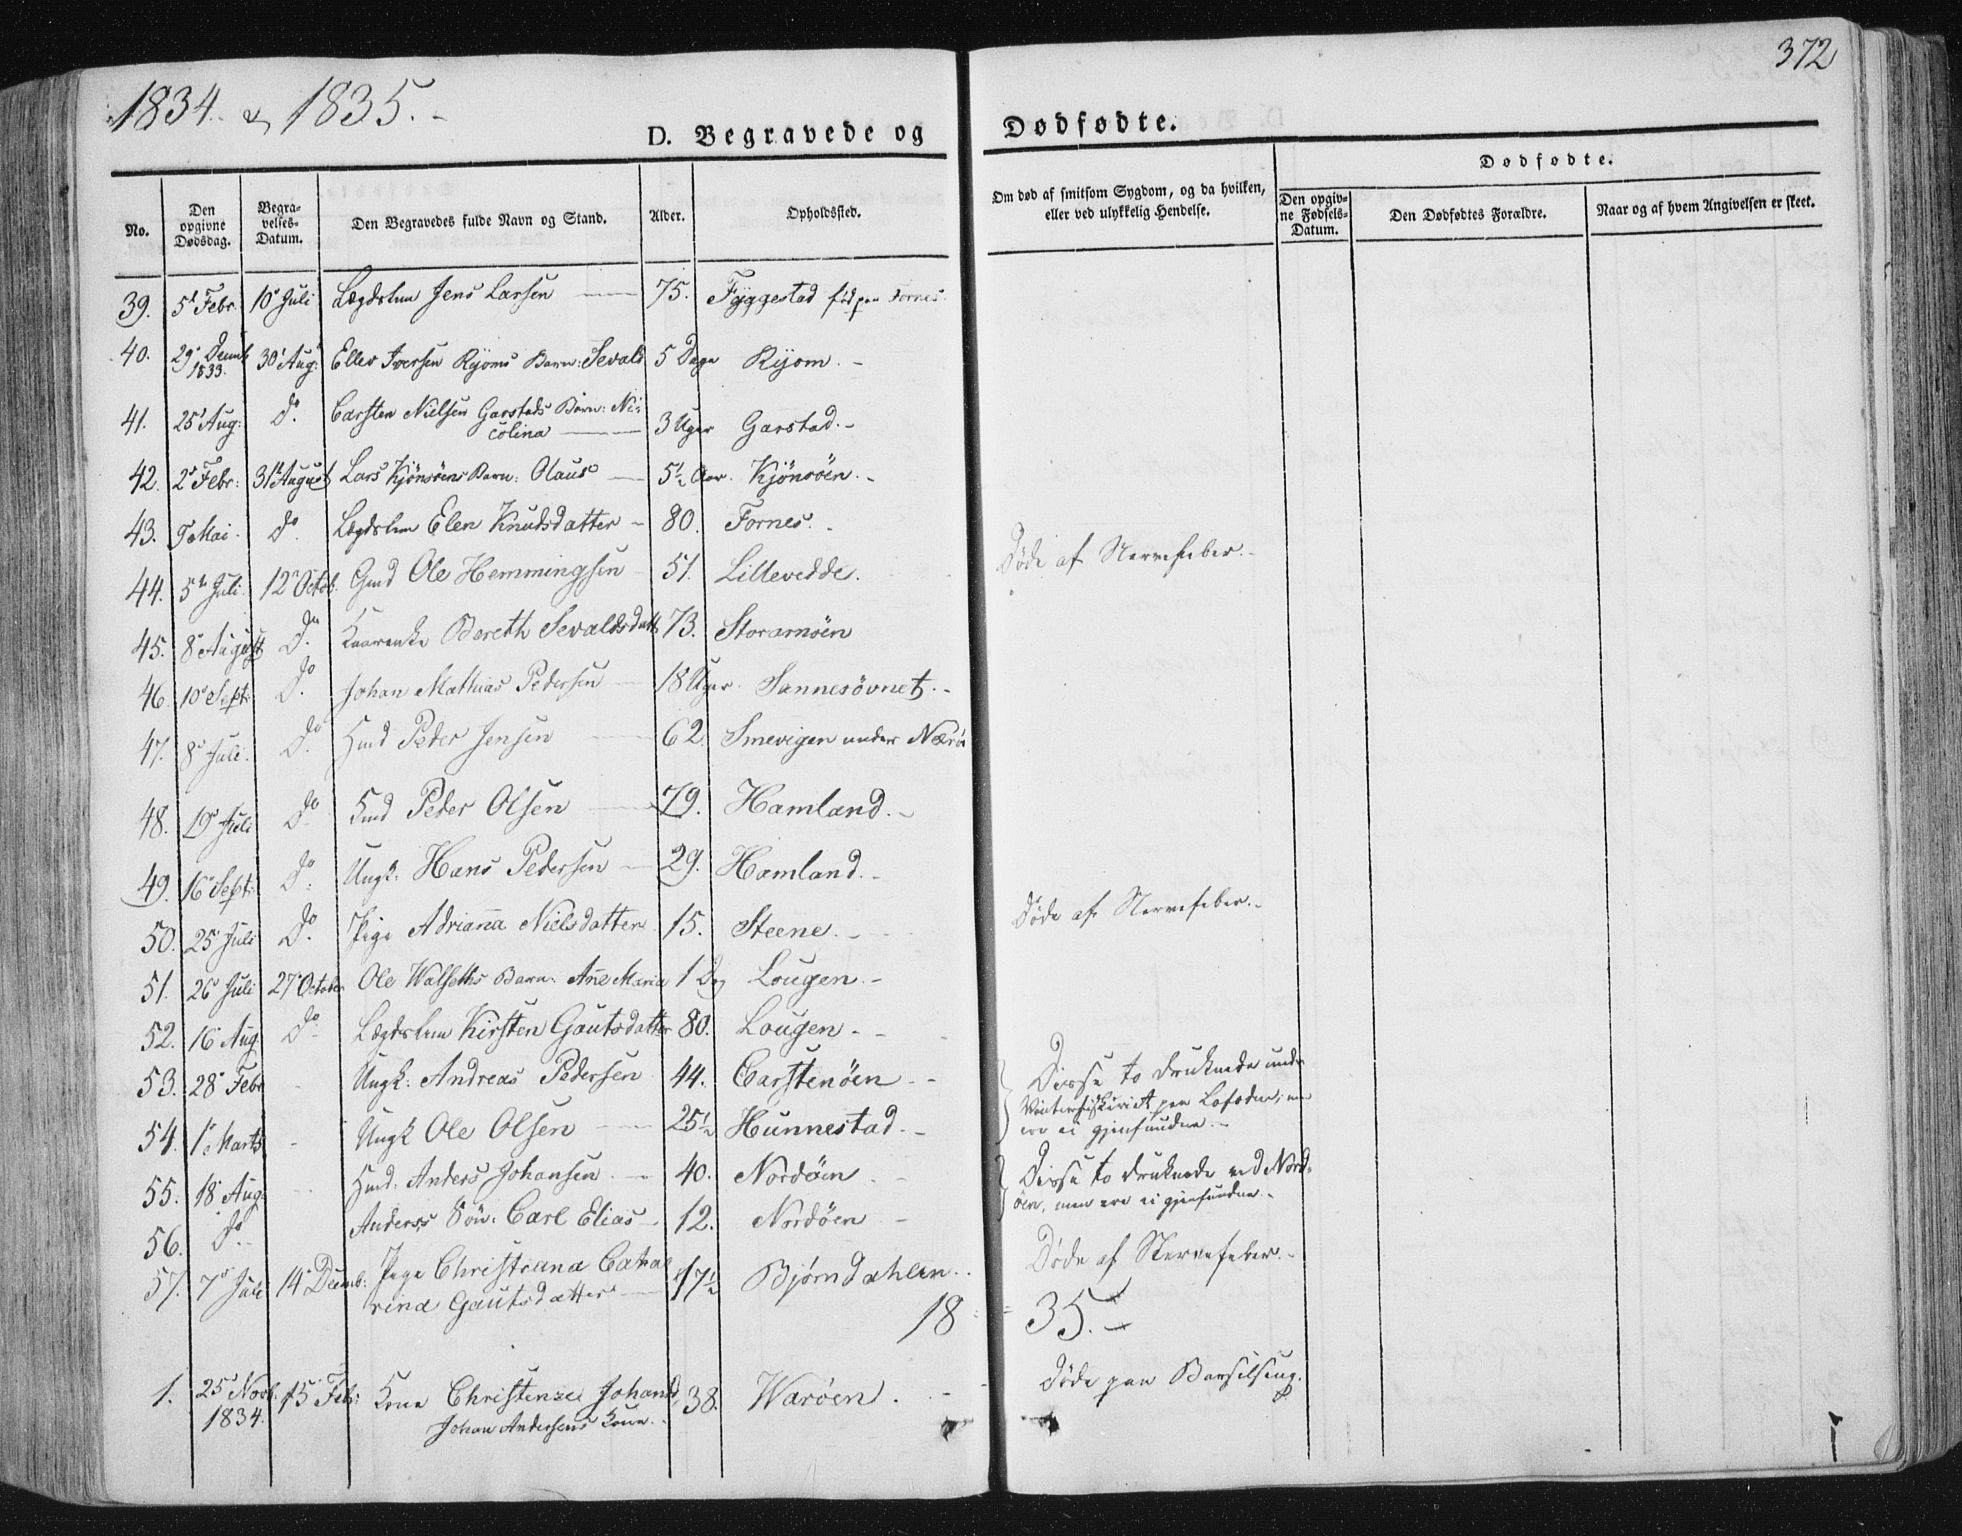 372
1834 & 1835.
D. Begravede og Dødfødte.
No.
Den opgivne Dødsdag.
Begravelses-Datum.
Den Begravedes fulde Navn og Stand.
Alder.
Opholdssted.
Om død af smitsom Sygdom, og da hvilken, eller ved ulykkelig Hendelse.
Dødfødte.
Den opgivne Fødsels-Datum.
Den Dødfødtes Forældre.
Naar og af hvem Angivelsen er skeet.
39. 5t Febr. 10 Juli Lægdslem Jens Larsen 75. Fyggestad fød paa Fornes
40. 29 Decemb 1833. 30 Aug: Ellev Iversen Ryoms Barn: Sevald 5 Dage Ryom.
41. 25 Aug: do. Carsten Nielsen Garstads Barn: Ni-
colina 3 Uger Garstad.
42. 2 Febr: 31 August Lars Kjönsöens Barn: Olaus 5½ Aar. Kjönsöen.
43. Mai do. Lægdslem Elen Knudsdatter 80. Fornes.
44. 5te Juli 12 Octob. Gmd Ole Hemmingsen 51. Lillevedde. Døde af Nervefeber.
45. 8 August Do. Bereth Sevaldsdatt 73. Storamöen
46. 10 Sept: Do. Johan Mathias Pedersen 18 Uger. Sannesövnet.
47. 8 Juli. Do. Hmd Peder Jensen 62. Smevigen under Nærö
48. 19 Juli Do Hmd Peder Olsen 79. Hamland.
49. 16 Sept: Do. Ungk: Hans Pedersen 29. Hamland.
50. 25 Juli Do. Pige Adrianna Nielsdatter 15. Steene. Døde af Nervefeber.
51. 26 Juli 27 October Ole Walseths Barn: Ane Maria 1 Dag Lougen.
52. 16 Aug Do. Lægdslem Kirsten Gautsdatter 80. Lougen.
53. 28 Febr Ungk: Andreas Pedersen 44. Carstenöen Disse to druknede under
Vinterfiskeriet paa Lofoden; men
54. 1 Marts Ungk Ole Olsen 25½ Hunnestad. ere ei gjenfundne.
55. 18 Aug: Hmd. Anders Johansen 40. Nordöen Disse to druknede ved Nord-
öen, men ere ei gjenfundne.
56. Do. Anderss Sön: Carl Elias 12. Nordöen
57. 7 Juli 14 Decemb: Pige Christiana Catha-
rina Gautsdatter 17½ Bjørndahlen. Døde af Nervefeber.
18 35.
1. 25 Novb. 1834. 15 Feb: Kone Christenze Johansd, 38. Waröen. Døde paa Barselseng.
Johan Andersens Kone.